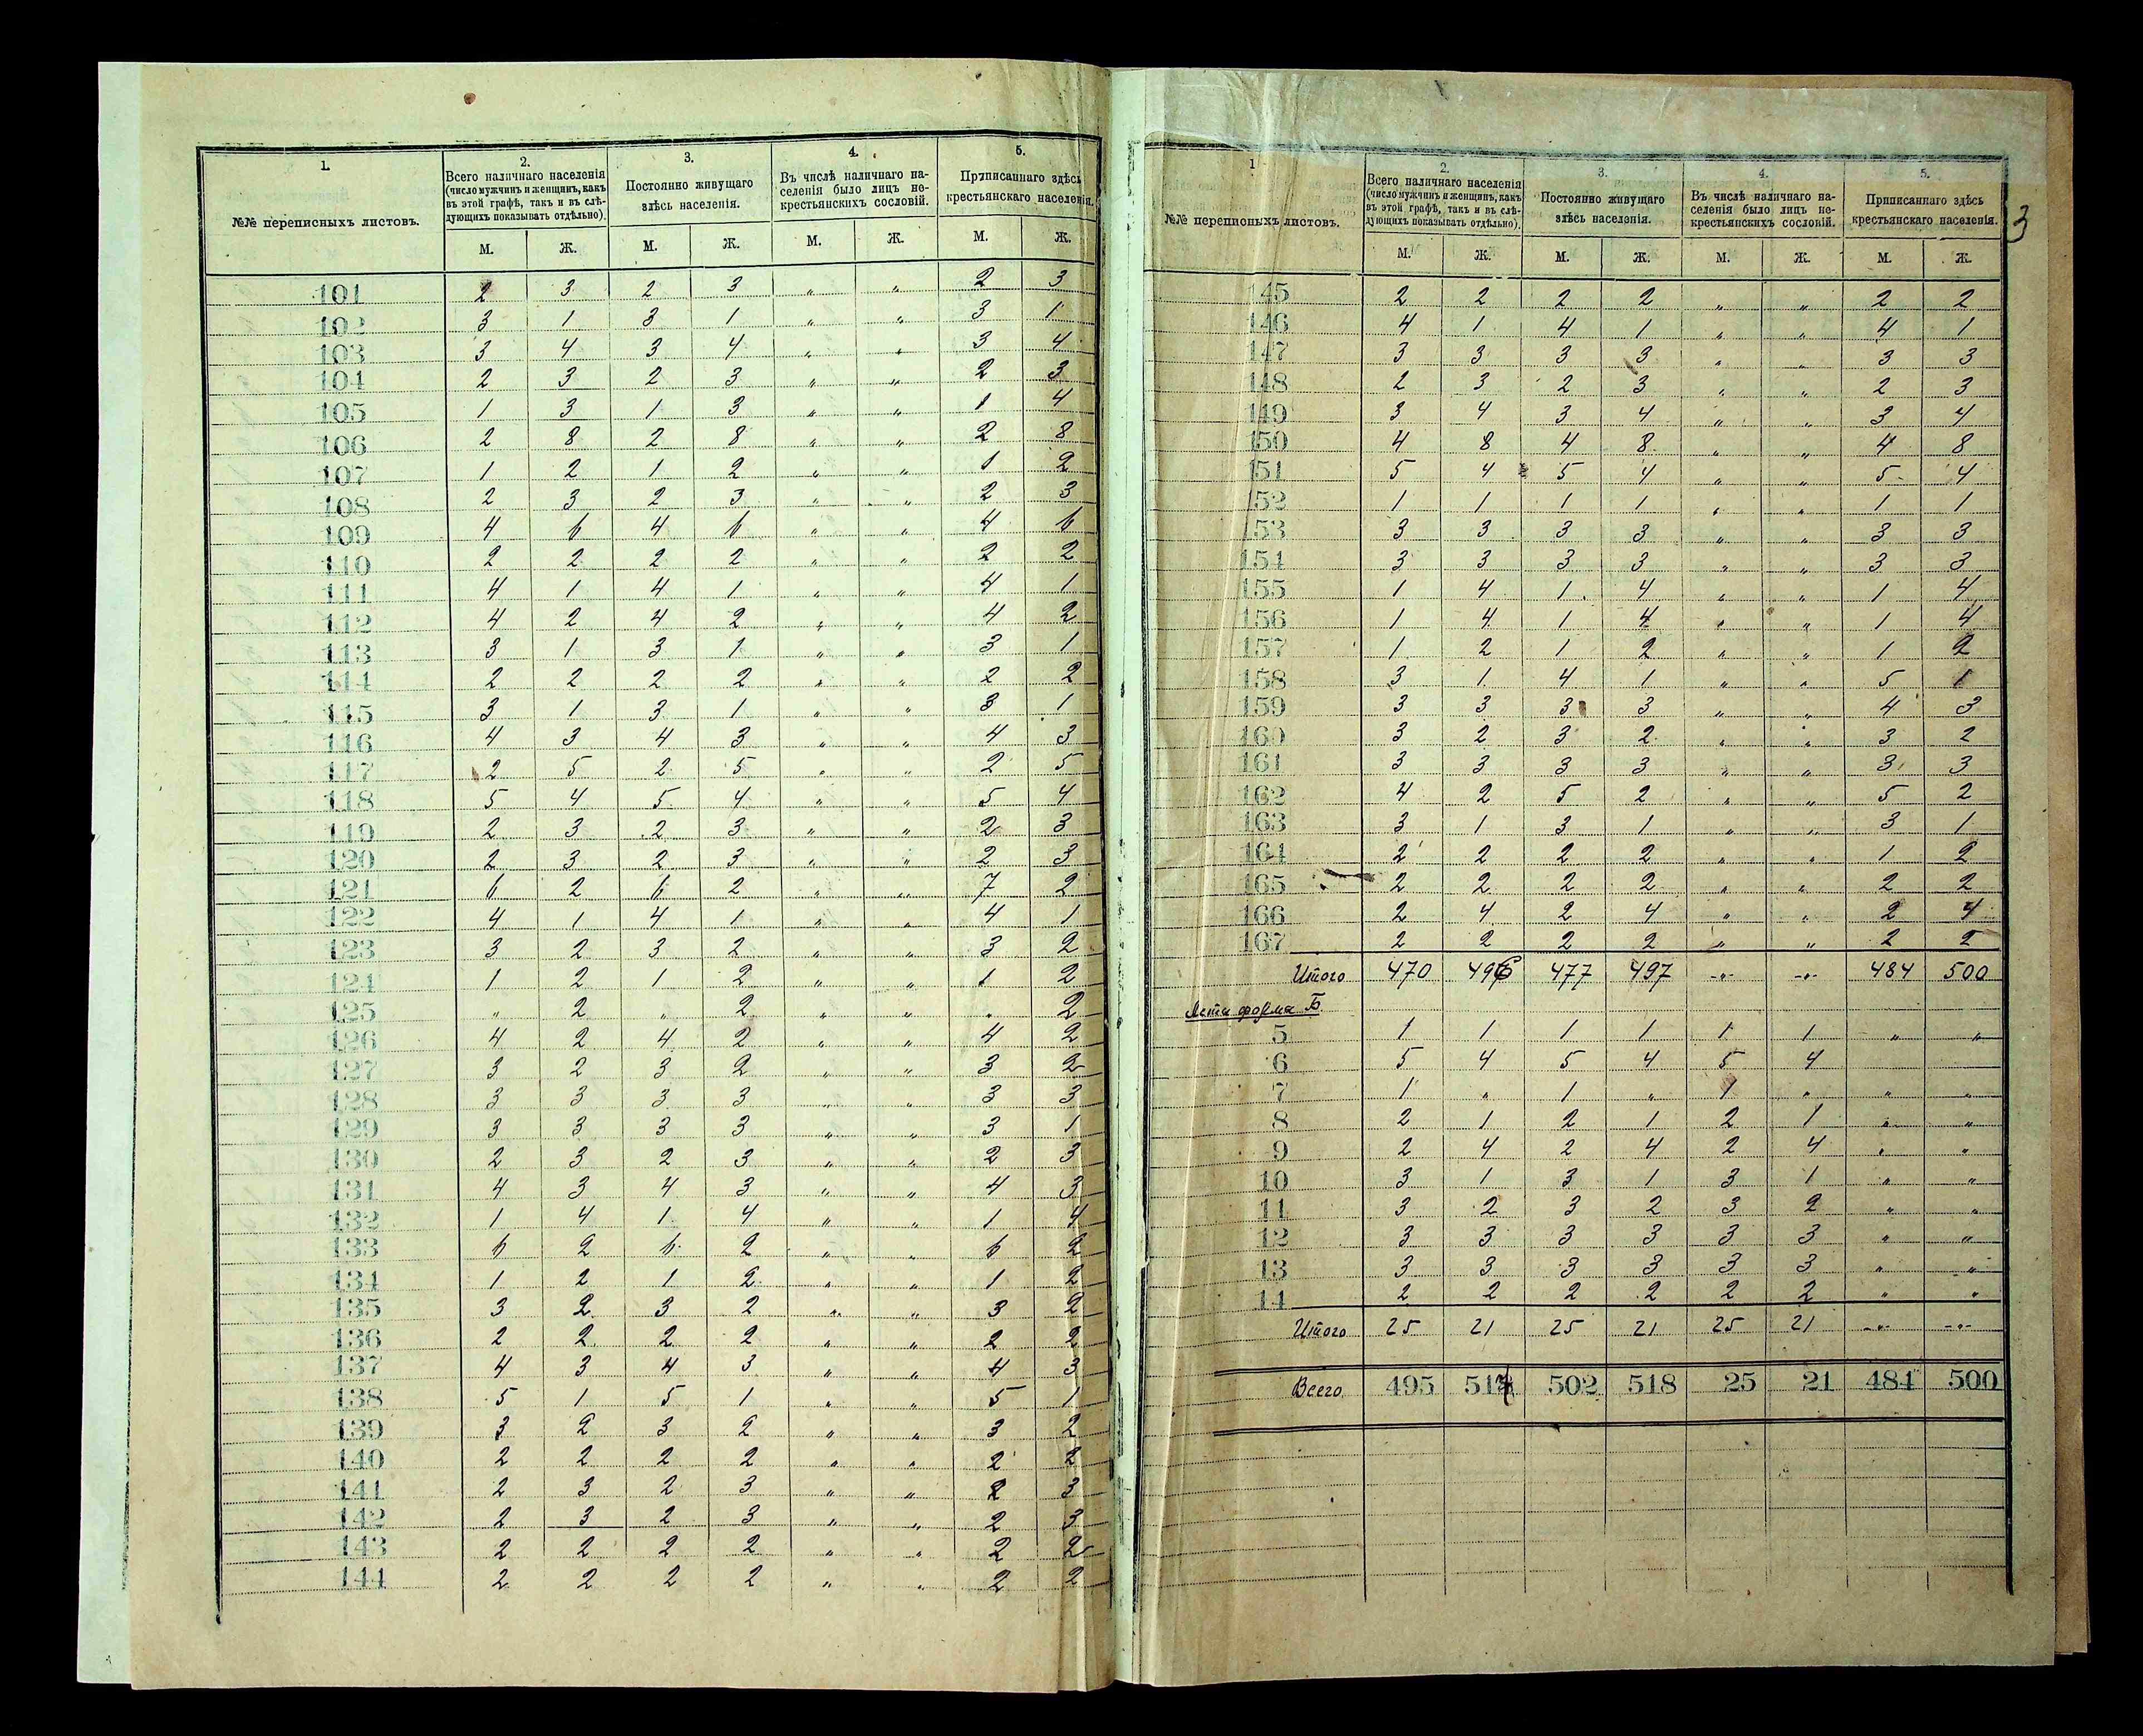 1. 2. 3. 4. 5.
№№ переписныхъ листовъ. Всего наличнаго населенія (число мужчинъ и женщинъ, какъ въ этой графѣ, такъ и въ слѣдующихъ показывать отдѣльно). Постоянно живущаго здѣсь населенія. Въ числѣ наличнаго населенія было лицъ некрестьянскихъ сословій. Приписаннаго здѣсь крестьянскаго населенія.
М. Ж. М. Ж. М. Ж. М. Ж.
101 2 3 2 3 „ „ 2 3
102 3 1 3 1 „ „ 3 1
103 3 4 3 4 „ „ 3 4
104 2 3 2 3 „ „ 2 3
105 1 3 1 3 „ „ 1 4
106 2 8 2 8 „ „ 2 8
107 1 2 1 2 „ „ 1 2
108 2 3 2 3 „ „ 2 3
109 4 6 4 6 „ „ 4 6
110 2 2 2 2 „ „ 2 2
111 4 1 4 1 „ „ 4 1
112 4 2 4 2 „ „ 4 2
113 3 1 3 1 „ „ 3 1
114 2 2 2 2 „ „ 2 2
115 3 1 3 1 „ „ 3 1
116 4 3 4 3 „ „ 4 3
117 2 5 2 5 „ „ 2 5
118 5 4 5 4 „ „ 5 4
119 2 3 2 3 „ „ 2 3
120 2 3 2 3 „ „ 2 3
121 6 2 6 2 „ „ 7 2
122 4 1 4 1 „ „ 4 1
123 3 2 3 2 „ „ 3 2
124 1 2 1 2 „ „ 1 2
125 „ 2 „ 2 „ „ „ 2
126 4 2 4 2 „ „ 4 2
127 3 2 3 2 „ „ 3 2
128 3 3 3 3 „ „ 3 3
129 3 3 3 3 „ „ 3 1
130 2 3 2 3 „ „ 2 3
131 4 3 4 3 „ „ 4 3
132 1 4 1 4 „ „ 1 4
133 6 2 6 2 „ „ 6 2
134 1 2 1 2 „ „ 1 2
135 3 2 3 2 „ „ 3 2
136 2 2 2 2 „ „ 2 2
137 4 3 4 3 „ „ 4 3
138 5 1 5 1 „ „ 5 1
139 3 2 3 2 „ „ 3 2
140 2 2 2 2 „ „ 2 2
141 2 3 2 3 „ „ 2 3
142 2 3 2 3 „ „ 2 3
143 2 2 2 2 „ „ 2 2
144 2 2 2 2 „ „ 2 2
3
1 2. 3. 4. 5.
№№ переписныхъ листовъ. Всего наличнаго населенія (число мужчинъ и женщинъ, какъ въ этой графѣ, такъ и въ слѣдующихъ показывать отдѣльно). Постоянно живущаго здѣсь населенія. Въ числѣ наличнаго населенія было лицъ некрестьянскихъ сословій. Приписаннаго здѣсь крестьянскаго населенія.
М. Ж. М. Ж. М. Ж. М. Ж.
145 2 2 2 2 „ „ 2 2
146 4 1 4 1 „ „ 4 1
147 3 3 3 3 „ „ 3 3
148 2 3 2 3 „ „ 2 3
149 3 4 3 4 „ „ 3 4
150 4 8 4 8 „ „ 4 8
151 5 4 5 4 „ „ 5 4
152 1 1 1 1 „ „ 1 1
153 3 3 3 3 „ „ 3 3
154 3 3 3 3 „ „ 3 3
155 1 4 1 4 „ „ 1 4
156 1 4 1 4 „ „ 1 4
157 1 2 1 2 „ „ 1 2
158 3 1 4 1 „ „ 5 1
159 3 3 3 3 „ „ 4 3
160 3 2 3 2 „ „ 3 2
161 3 3 3 3 „ „ 3 3
162 4 2 5 2 „ „ 5 2
163 3 1 3 1 „ „ 3 1
164 2 2 2 2 „ „ 1 2
165 2 2 2 2 „ „ 2 2
166 2 4 2 4 „ „ 2 4
167 2 2 2 2 „ „ 2 2
Итого 470 496 477 497 -„- -„- 484 500
форма Б.
5 1 1 1 1 1 1 „ „
6 5 4 5 4 5 4
7 1 „ 1 „ 1 „ „ „
8 2 1 2 1 2 1 „ „
9 2 4 2 4 2 4 „ „
10 3 1 3 1 3 1 „ „
11 3 2 3 2 3 2 „ „
12 3 3 3 3 3 3 „ „
13 3 3 3 3 3 3 „ „
14 2 2 2 2 2 2 „ „
Итого 25 21 25 21 25 21 -„- -„-
Всего 495 517 502 518 25 21 484 500